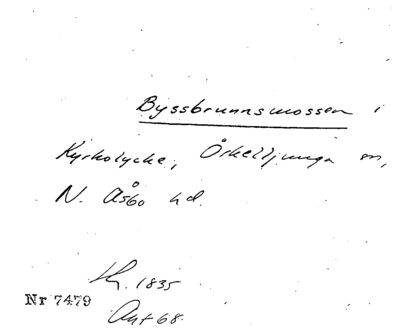 Byssbrunnsmossen i
Kyrkolycke, Örkelljunga sn,
N. Åsbo hd.
1835
Nr 7479
Akt 68